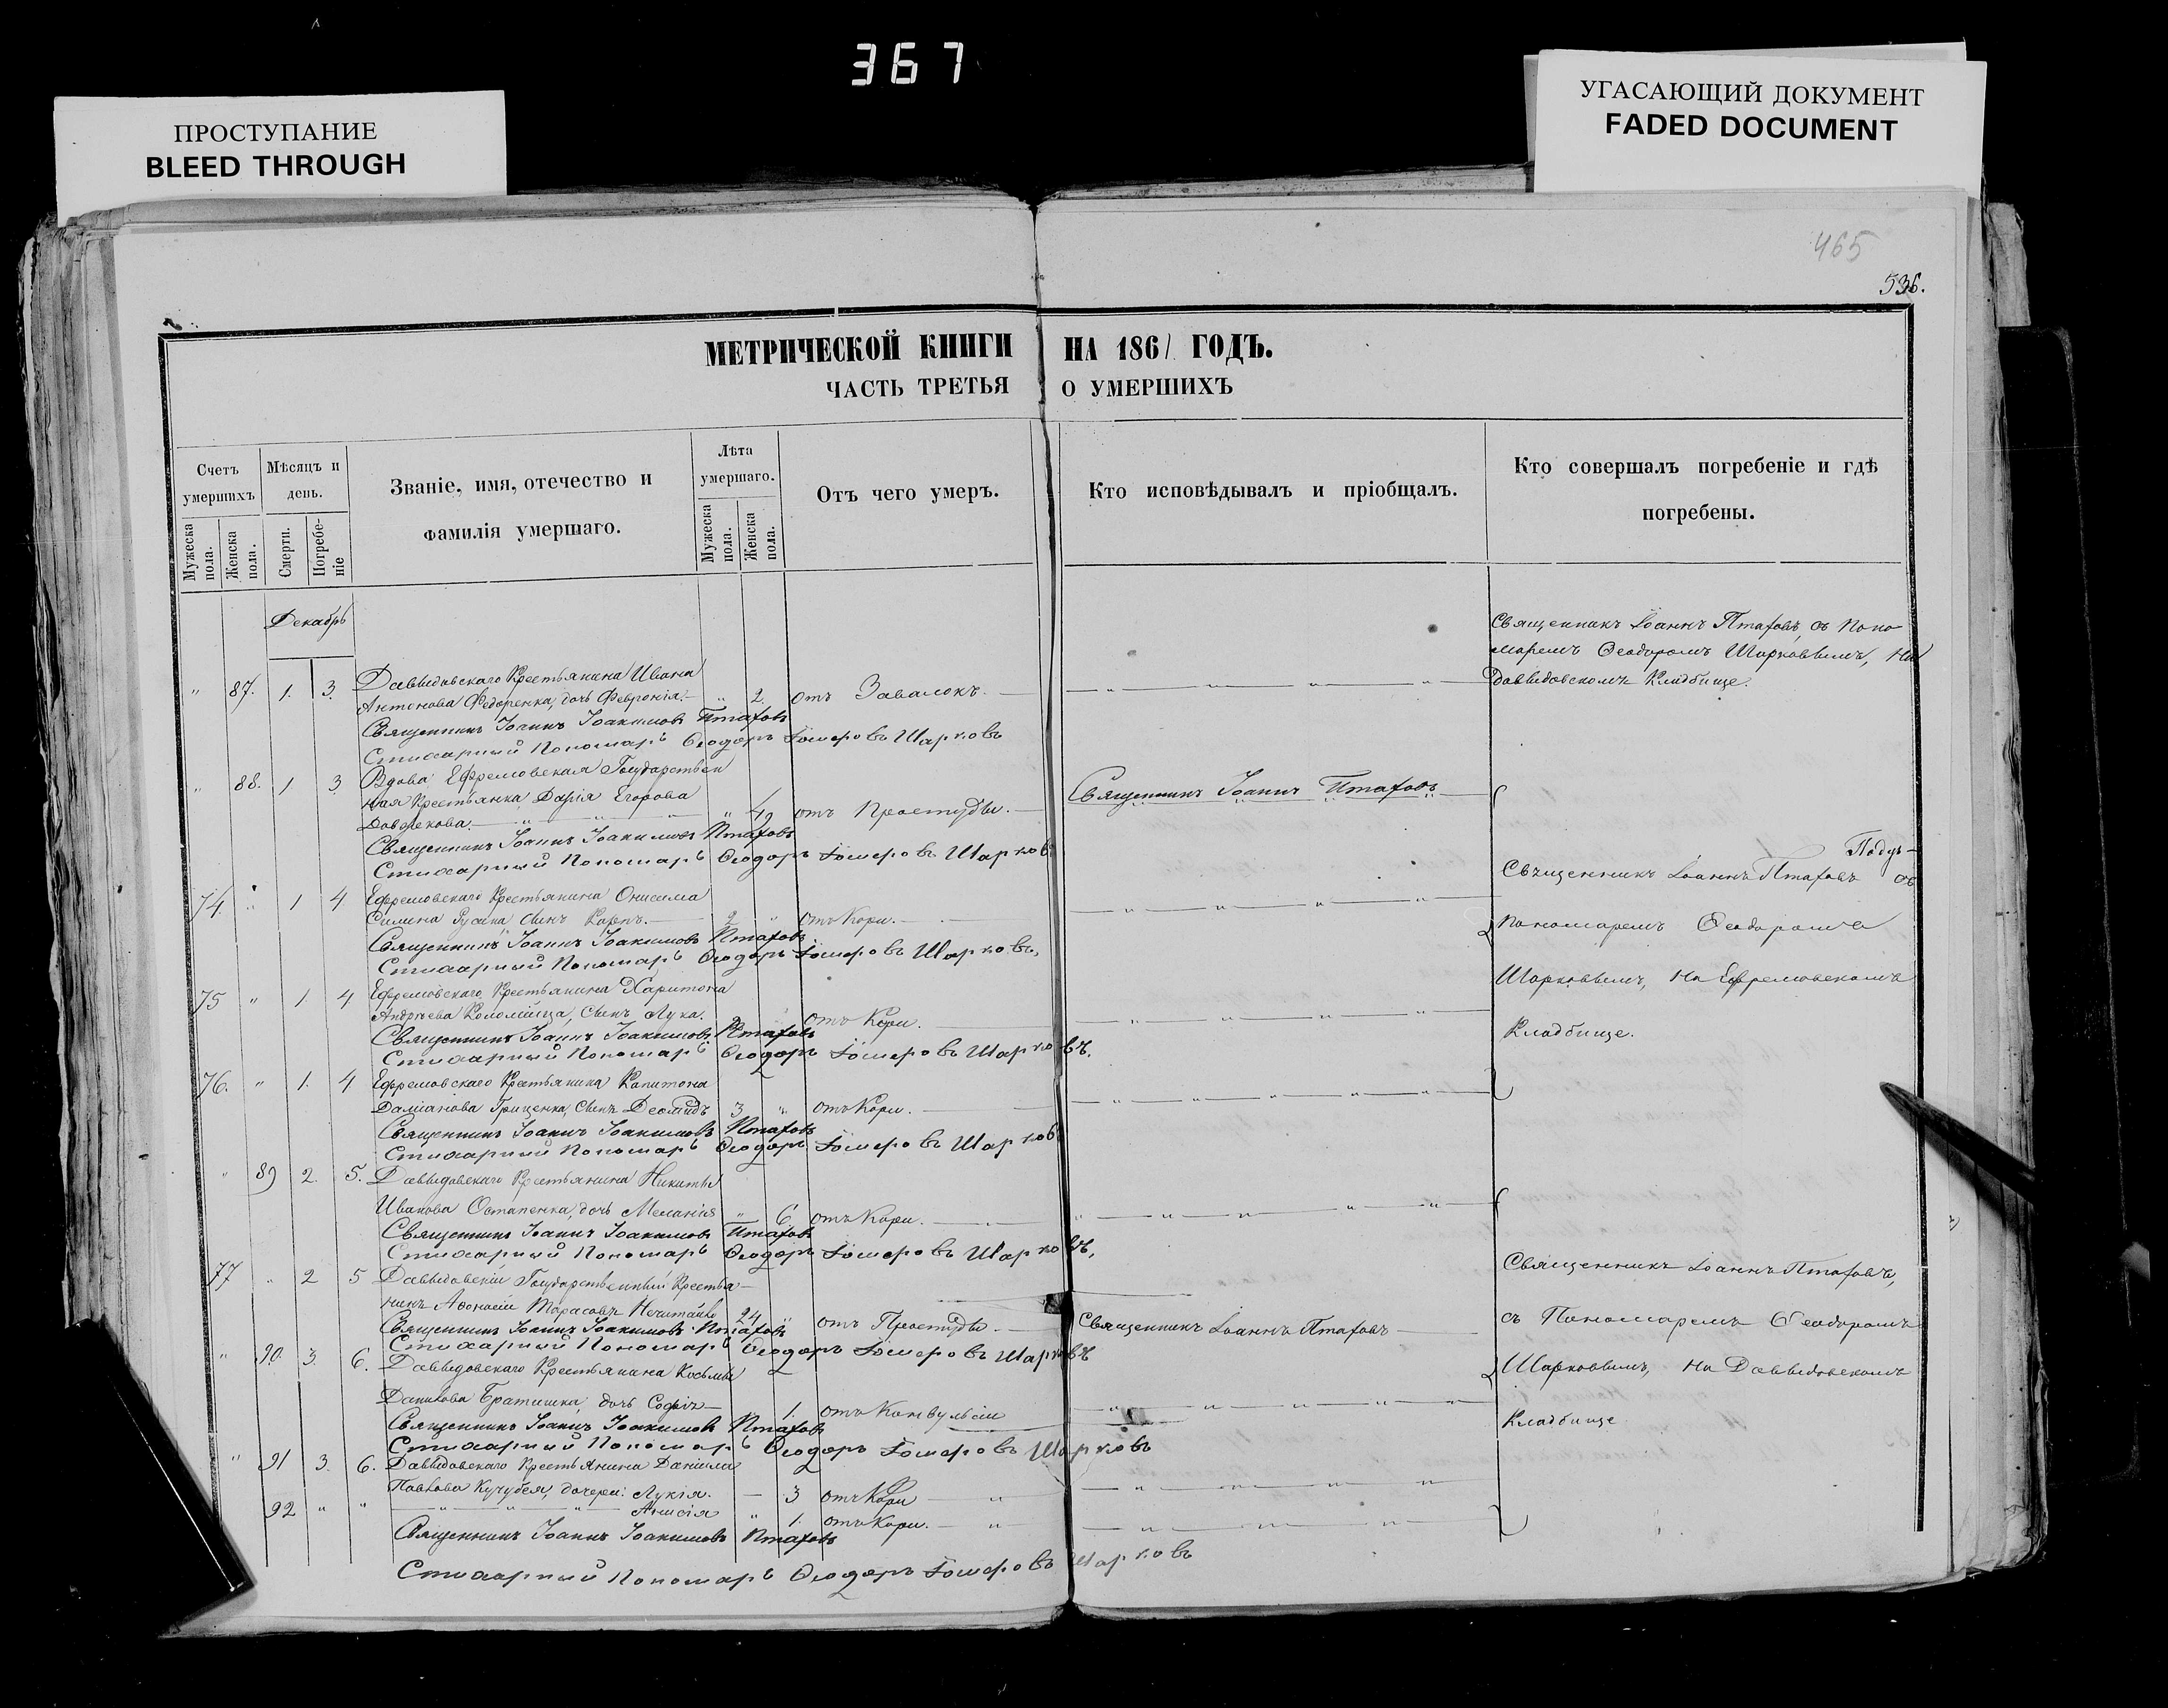 367
ПРОСТУПАНИЕ
BLEED THROUGH
УГАСАЮЩИЙ ДОКУМЕНТ
FADED DOCUMENT
465
536.
МЕТРИЧЕСКОЙ КНИГИ НА 1861 ГОДЪ.
ЧАСТЬ ТРЕТЬЯ О УМЕРШИХЪ
Счетъ умершихъ
Мужеска пола.
Женска пола.
Мѣсяцъ и день.
Смерти.
Погребе-ніе
Званіе, имя, отечество и фамилія умершаго.
Лѣта умершаго.
Мужеска пола.
Женска пола.
Отъ чего умеръ.
Кто исповѣдывалъ и пріобщалъ.
Кто совершалъ погребеніе и гдѣ погребены.
Декабрь
Священникъ Іоаннъ Птаховъ, съ Поно-
маремъ Ѳеодоромъ Шарковымъ, на
Давыдовскомъ Кладбище.
" 87. 1. 3. Давыдовскаго Крестьянина Ивана
Антонова Федоренка, дочь Февронія. " 2. отъ Завалокъ.
Священникъ Іоаннъ Іоакимовъ Птаховъ
Стихарный Пономарь Ѳеодоръ Шарковъ
" 88. 1 3 Вдова Ефремовская Государствен
ная Крестьянка Дарія Егорова
" 49 отъ Простуды. Священникъ Іоаннъ Птаховъ
Священникъ Іоаннъ Іоакимовъ Птаховъ
Стихарный Пономарь Ѳеодоръ Шарков
74. " 1 4 Ефремовскаго Крестьянина Онисима
Силина Русина сынъ Карпъ. 2 " отъ Кори.
Священникъ Іоаннъ Іоакимовъ Птаховъ
Стихарный Пономарь Ѳеодоръ Шарковъ,
Священникъ Іоаннъ Птаховъ съ
Пономаремъ Ѳеодоромъ
Шарковымъ, на Ефремовскомъ
Кладбище.
75 " 1 4 Ефремовскаго Крестьянина Харитона
Андреева Коломійца, сынъ Лука. отъ Кори.
Священникъ Іоаннъ Іоакимовъ Птаховъ
Стихарный Пономарь Ѳеодоръ Шарковъ.
76. " 1. 4 Ефремовскаго Крестьянина Капитона
Даміанова Гриценка, сынъ Деомидъ 3 " отъ Кори.
Священникъ Іоаннъ Іоакимовъ Птаховъ
Стихарный Пономарь Ѳеодоръ Шарков
" 89 2. 5. Давыдовскаго Крестьянина Никиты
Иванова Остапенка, дочь Меланія " 6. отъ Кори.
Священникъ Іоаннъ Іоакимовъ Птаховъ
Стихарный Пономарь Ѳеодоръ Шарковъ,
77 " 2 5 Давыдовскій Государственный Крестья-
нинъ Аѳонасій Тарасовъ Нечитайло 24 " отъ Простуды. Священникъ Іоаннъ Птаховъ
Священникъ Іоаннъ Іоакимовъ Птаховъ
Стихарный Пономарь Ѳеодоръ Шарковъ
Священникъ Іоаннъ Птаховъ,
съ Пономаремъ Ѳеодоромъ
Шарковымъ, на Давыдовскомъ
Кладбище
" 90. 3. 6. Давыдовскаго Крестьянина Косьмы
Данилова Братишка, дочь Софія 1. отъ Конвульсіи
Священникъ Іоаннъ Іоакимовъ Птаховъ
Стихарный Пономарь Ѳеодоръ Шарковъ
" 91 3. 6. Давыдовскаго Крестьянина Даніила
Павлова Кучубея, дочери: Лукія. 3 отъ Кори
92 " " Анисія " 1. отъ Кори.
Священникъ Іоаннъ Іоакимовъ Птаховъ
Стихарный Пономарь Ѳеодоръ Шарковъ